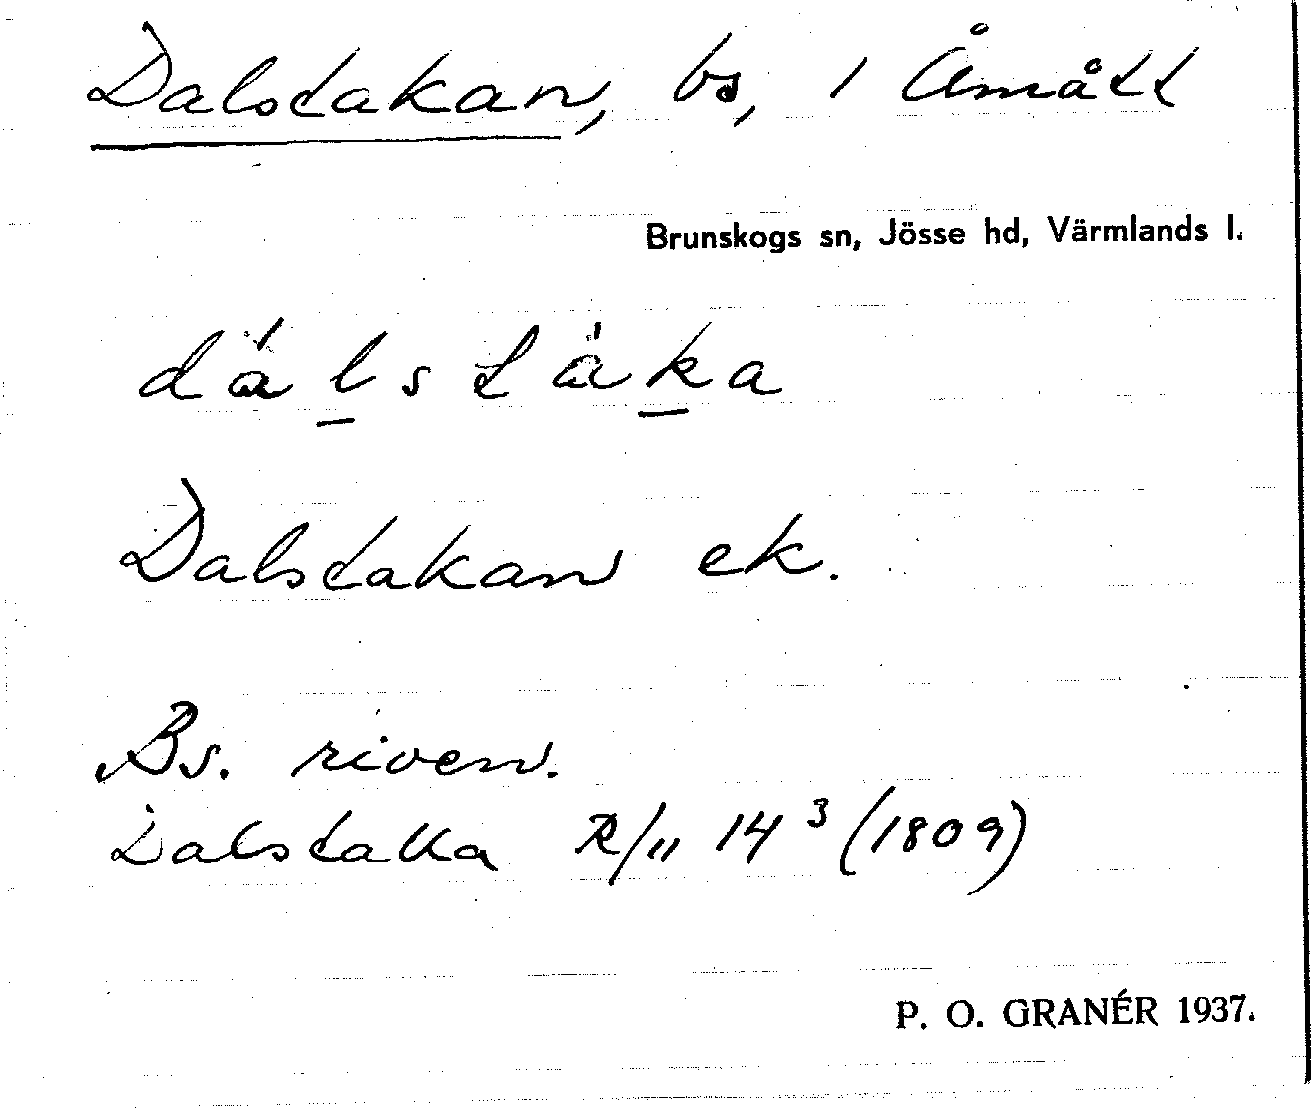 Dalstakan, bs, 1 Åmått
Brunskogs sn, Jösse hd, Värmlands l.
dàlstàka
Dalstakan ek.
Bs. riven.
Dalstaka R/11 14³ (1809)
P. O. GRANÉR 1937.